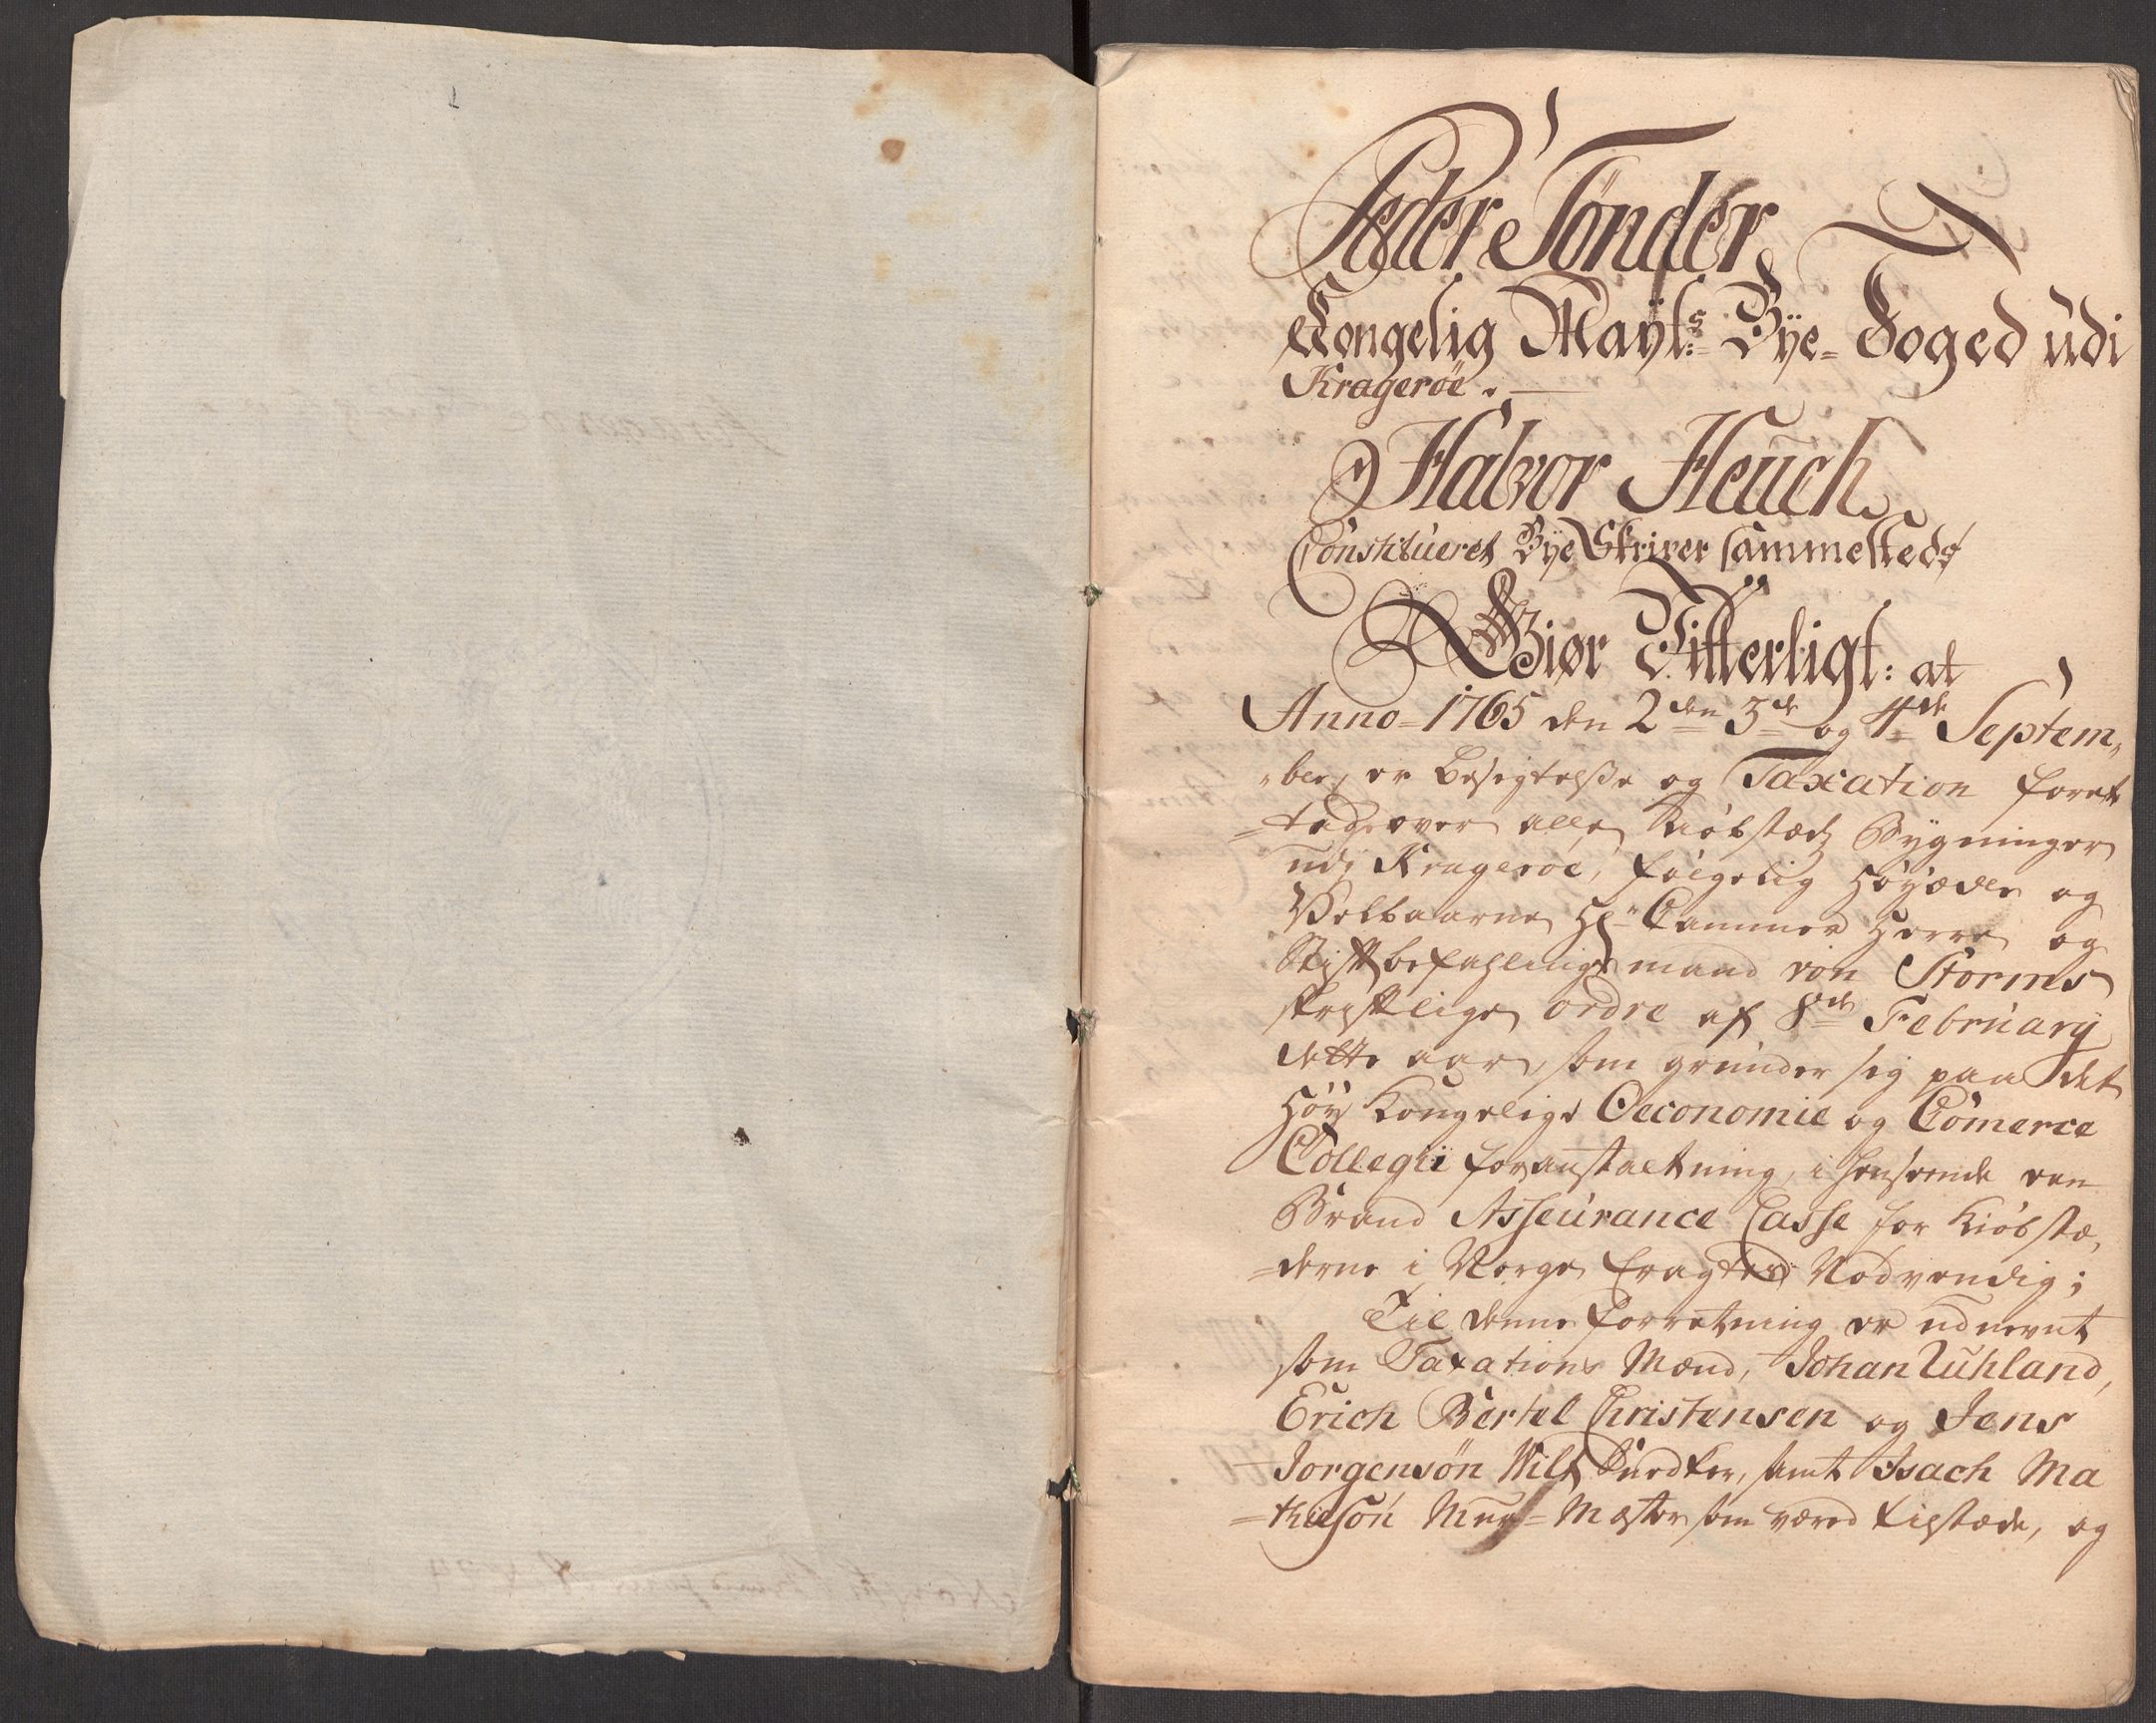 Peder Tønder
Kongelig Mayts: Bÿe=Foged udi
Kragerøe.
Halvor Heuch
Constitueret Bÿe Skriver sammesteds
Giør Vitterligt: at
Anno=1765 den 2den 3de og 4de Septem,,
,,ber, er besigtelße og Taxation foret
=taget over alle Kiøbstæds Bygninger
udj Kragerøe, følgelig Høyædle og
Velbaarne Hr Cammer Herre og
Stiftbefahlingsmand von Storms
skriftlige ordre af 8de Februarÿ
dette aar, som grunder sig paa det
Høy Kongelige Oeconomie og Comerce
Collegii foranstaltning, i henseende een
Brand Asseurance Casse for Kiøbstæ,
=derne i Norge eragted Nødvendig;
Til denne forretning er udnevnt
som Taxations Mænd, Johan Zuhland,
Erich Bertel Christensen og Jens
Jorgensøn Wilt Snedker, samt Isach Ma
=thiesøn Muur=Mester som vared tilstæde, og